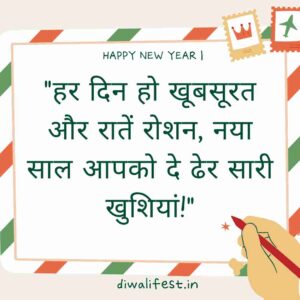 HAPPY NEW YEAR |
"हर दिन हो खूबसूरत
और रातें रोशन, नया
साल आपको दे ढेर सारी
खुशियां!"
diwalifest.in